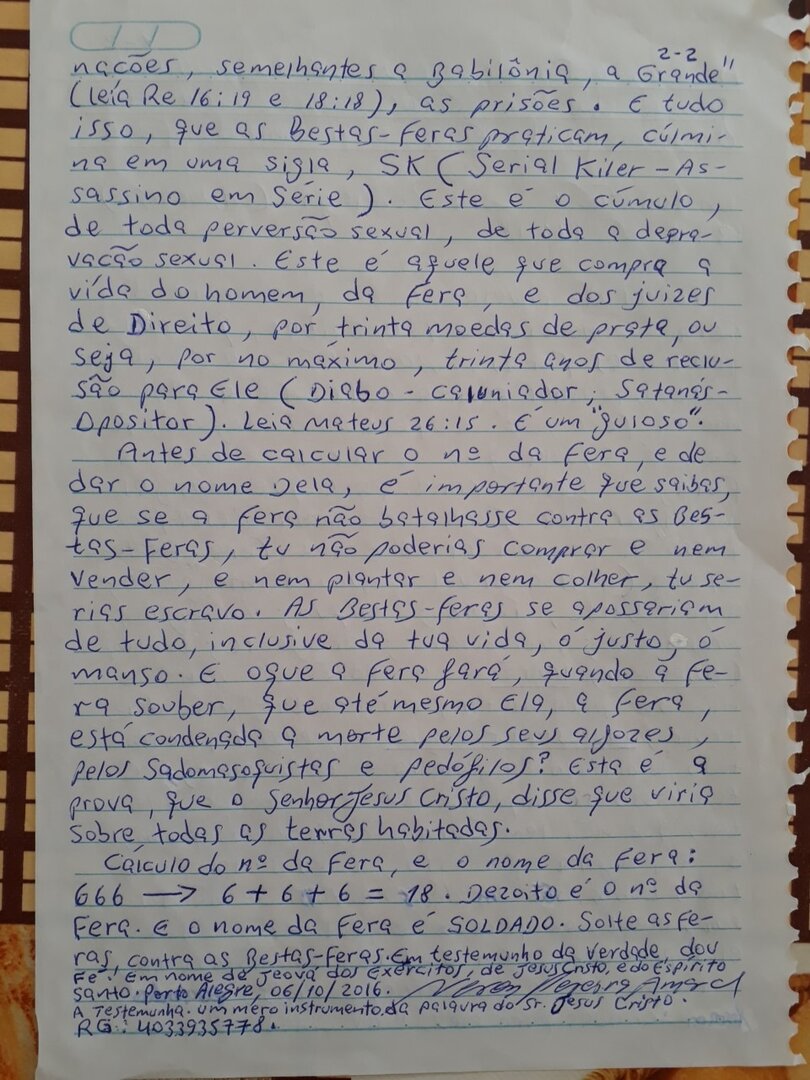 2-2
nações, semelhantes a Babilônia, a Grande"
(leia Re 16:19 e 18:18), as prisões. E tudo
isso, que as Bestas-feras praticam, cúlmi-
na em uma sigla, SK (Serial Kiler - As-
sassino em Série). Este é o cúmulo,
de toda perversão sexual, de toda a depra-
vacão sexual. Este é aquele que compra a
vída do homem, da fera, e dos juizes
de Direito, por trinta moedas de prata, ou
seja, por no máximo, trinta anos de reclu-
são para Ele (Diabo - caluniador; Satanás-
Opositor). Leia Mateus 26:15. É um "guloso".
Antes de calcular o nº da fera, e de
dar o nome Dela, é importante que saibas,
que se a fera não batalhasse contra as Bes-
tas-Feras, tu não poderias comprar e nem
vender, e nem plantar e nem colher, tu se-
rias escravo. As Bestas-feras se apossariam
de tudo, inclusive da tua vida, ó justo, ó
manso. E oque a fera fará, quando a fe-
ra souber, que até mesmo Ela, a fera,
está condenada a morte pelos seus algozes,
pelos sadomasoquistas e pedófilos? Esta é a
prova, que o Senhor Jesus Cristo, disse que viria
sobre todas as terras habitadas.
Cálculo do nº da Fera, e o nome da fera:
666 → 6 + 6 + 6 = 18. Dezoito é o nº da
Fera. E o nome da fera é SOLDADO. Solte as fe-
ras, contra as Bestas-Feras. Em testemunho da verdade, dou
Fé, em nome de Jeová dos Exércitos, de Jesus Cristo, e do Espírito
Santo. Porto Alegre, 06/10/2016.
A Testemunha. um mero instrumento da palavra do Sr. Jesus Cristo.
RG.: 4033935778.